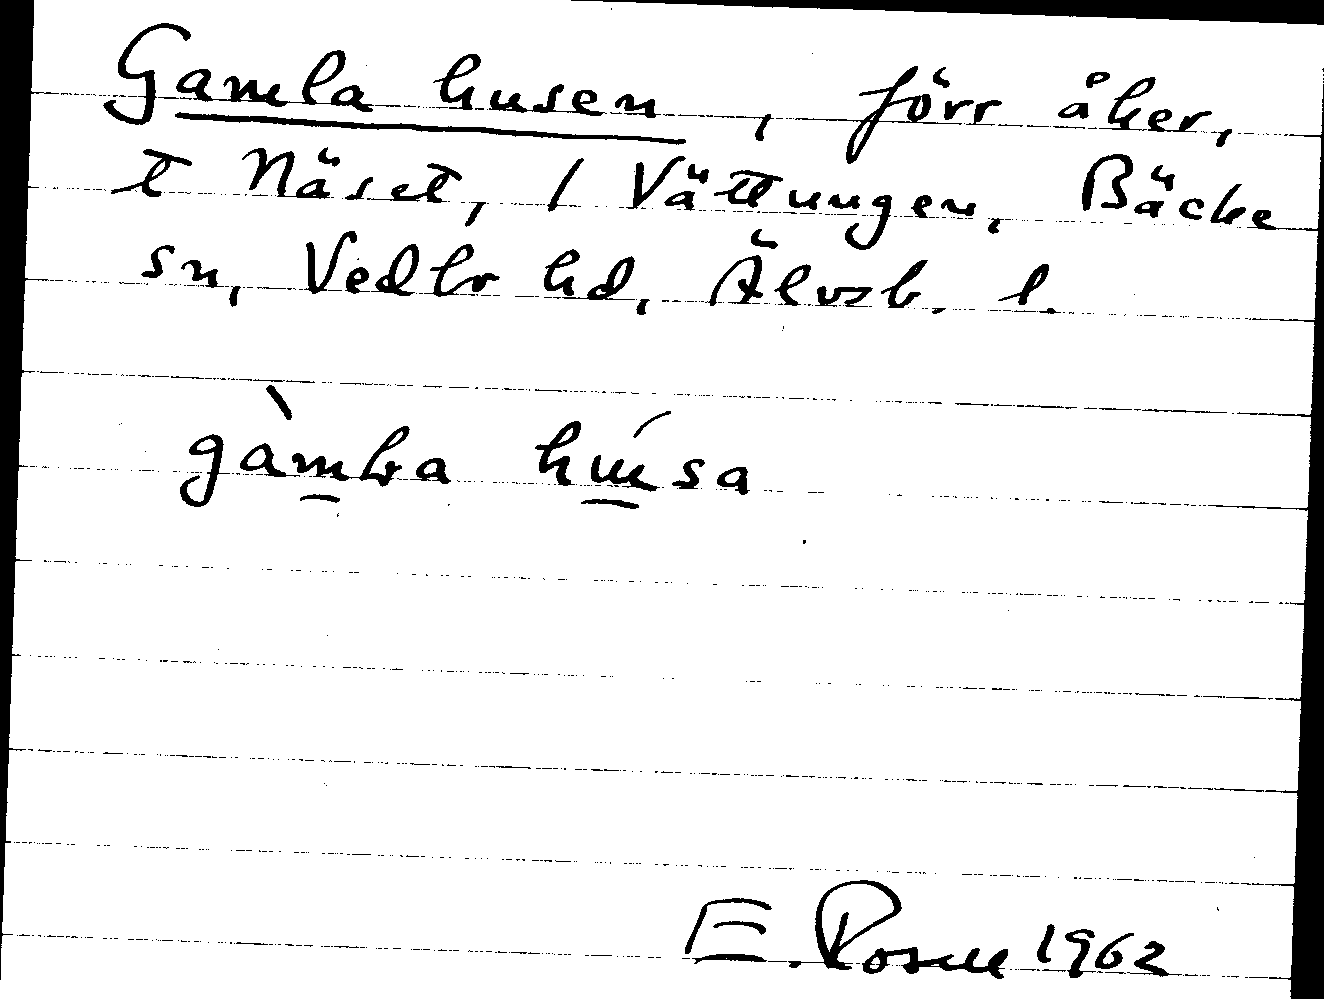 Gamla husen, förr åker,
t Näset, 1 Vättungen, Bäcke
sn, Vedbo hd, Älvsb. l.
gàmɫa húsa
E. Rosell 1962